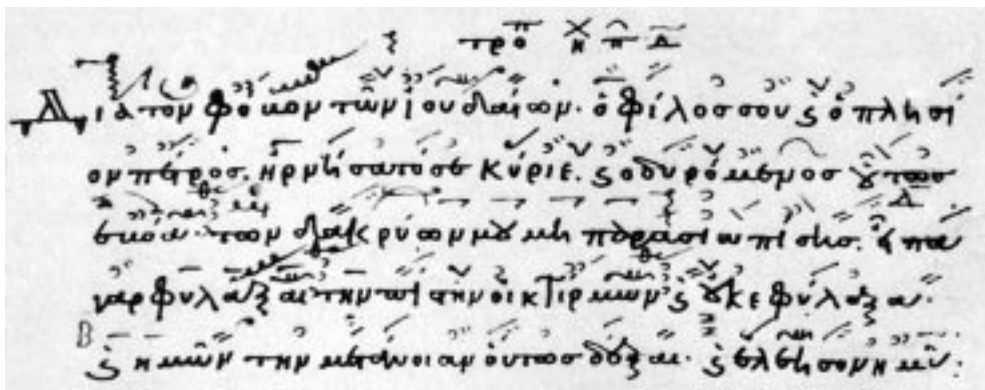 Διὰ τὸν φόβον τῶν ἰουδαίων· ὁ φίλος σου ϗ ὁ πλησί
ον πέτρος. ἠρνήσατό σε κύριε. ϗ ὀδυρόμενος οὕτως
ἐβόα· τῶν δακρύων μου μὴ παρασιωπίσης. εἶπα
γὰρ φυλάξαι τὴν πίστην οἰκτίρμων ϗ οὐκ ἐφύλαξα.
ϗ ἡμῶν τὴν μετάνοιαν οὕτως δέξαι. ϗ ἐλέησον ἡμᾶς: